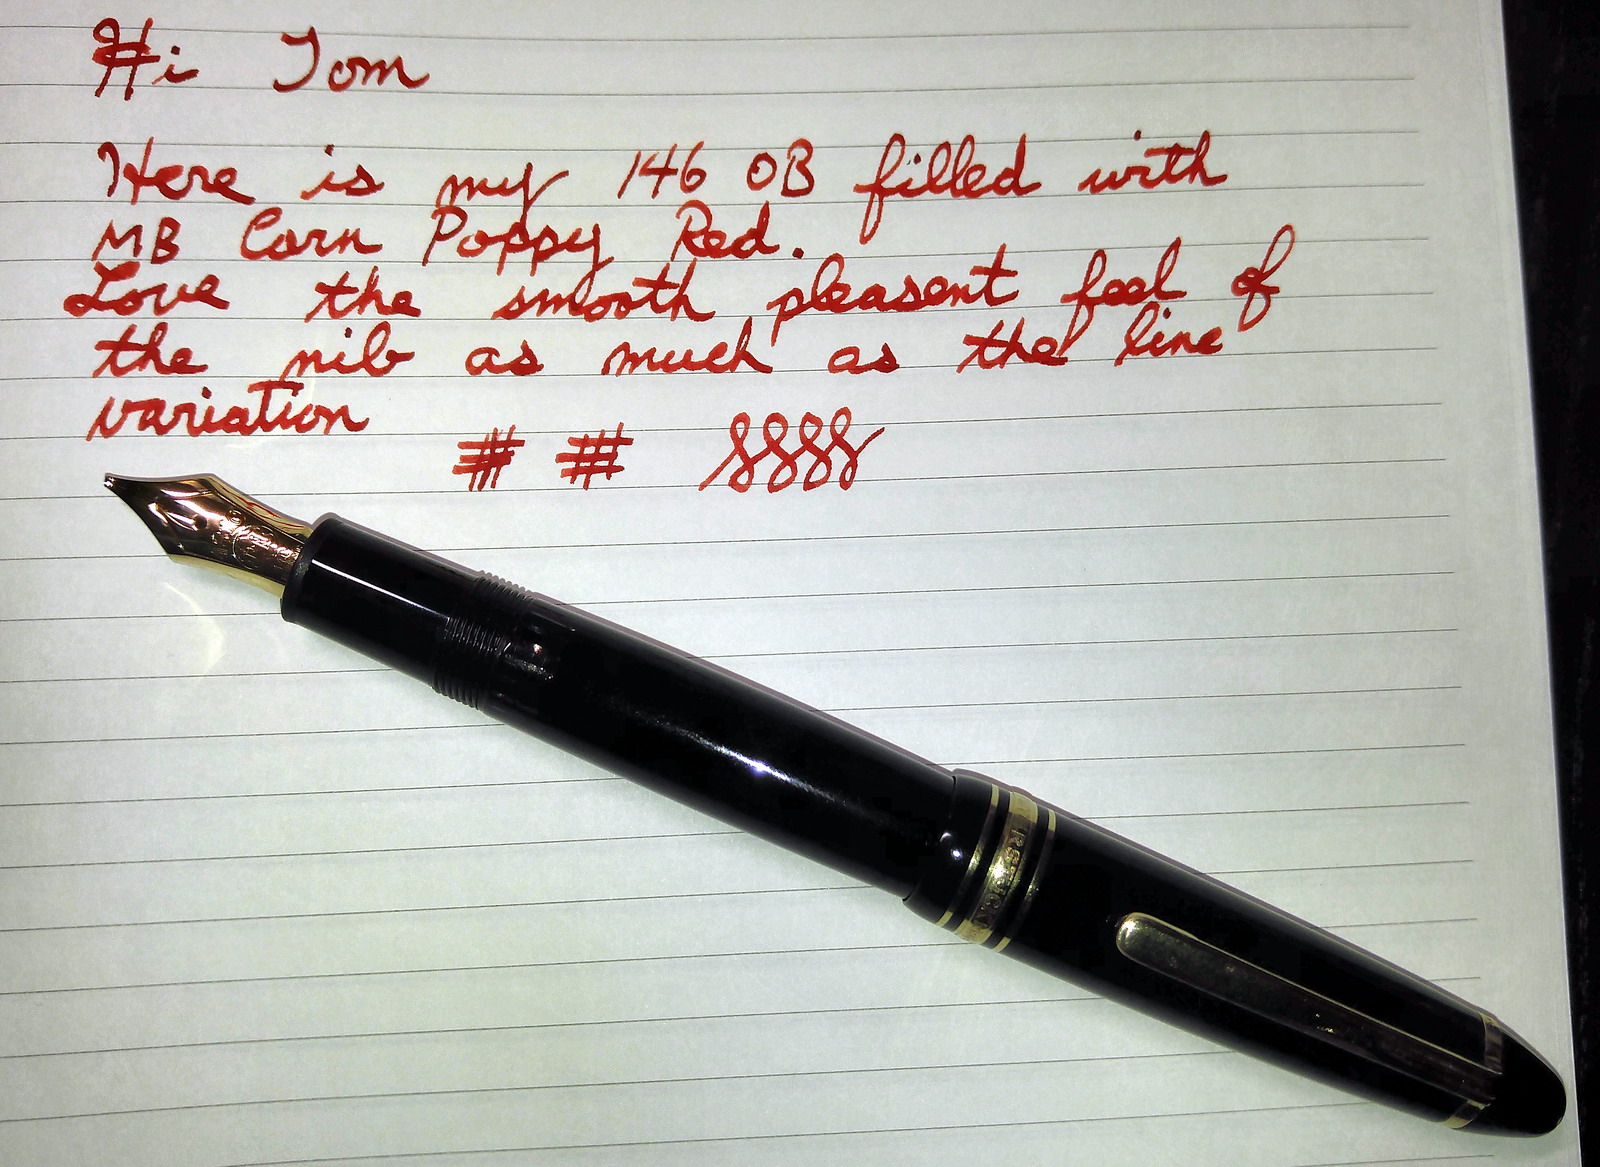 Hi Tom
Here is my 146 OB filled with
MB Corn Poppy Red.
Love the smooth pleasent feel of
the nib as much as the line
variation
# #